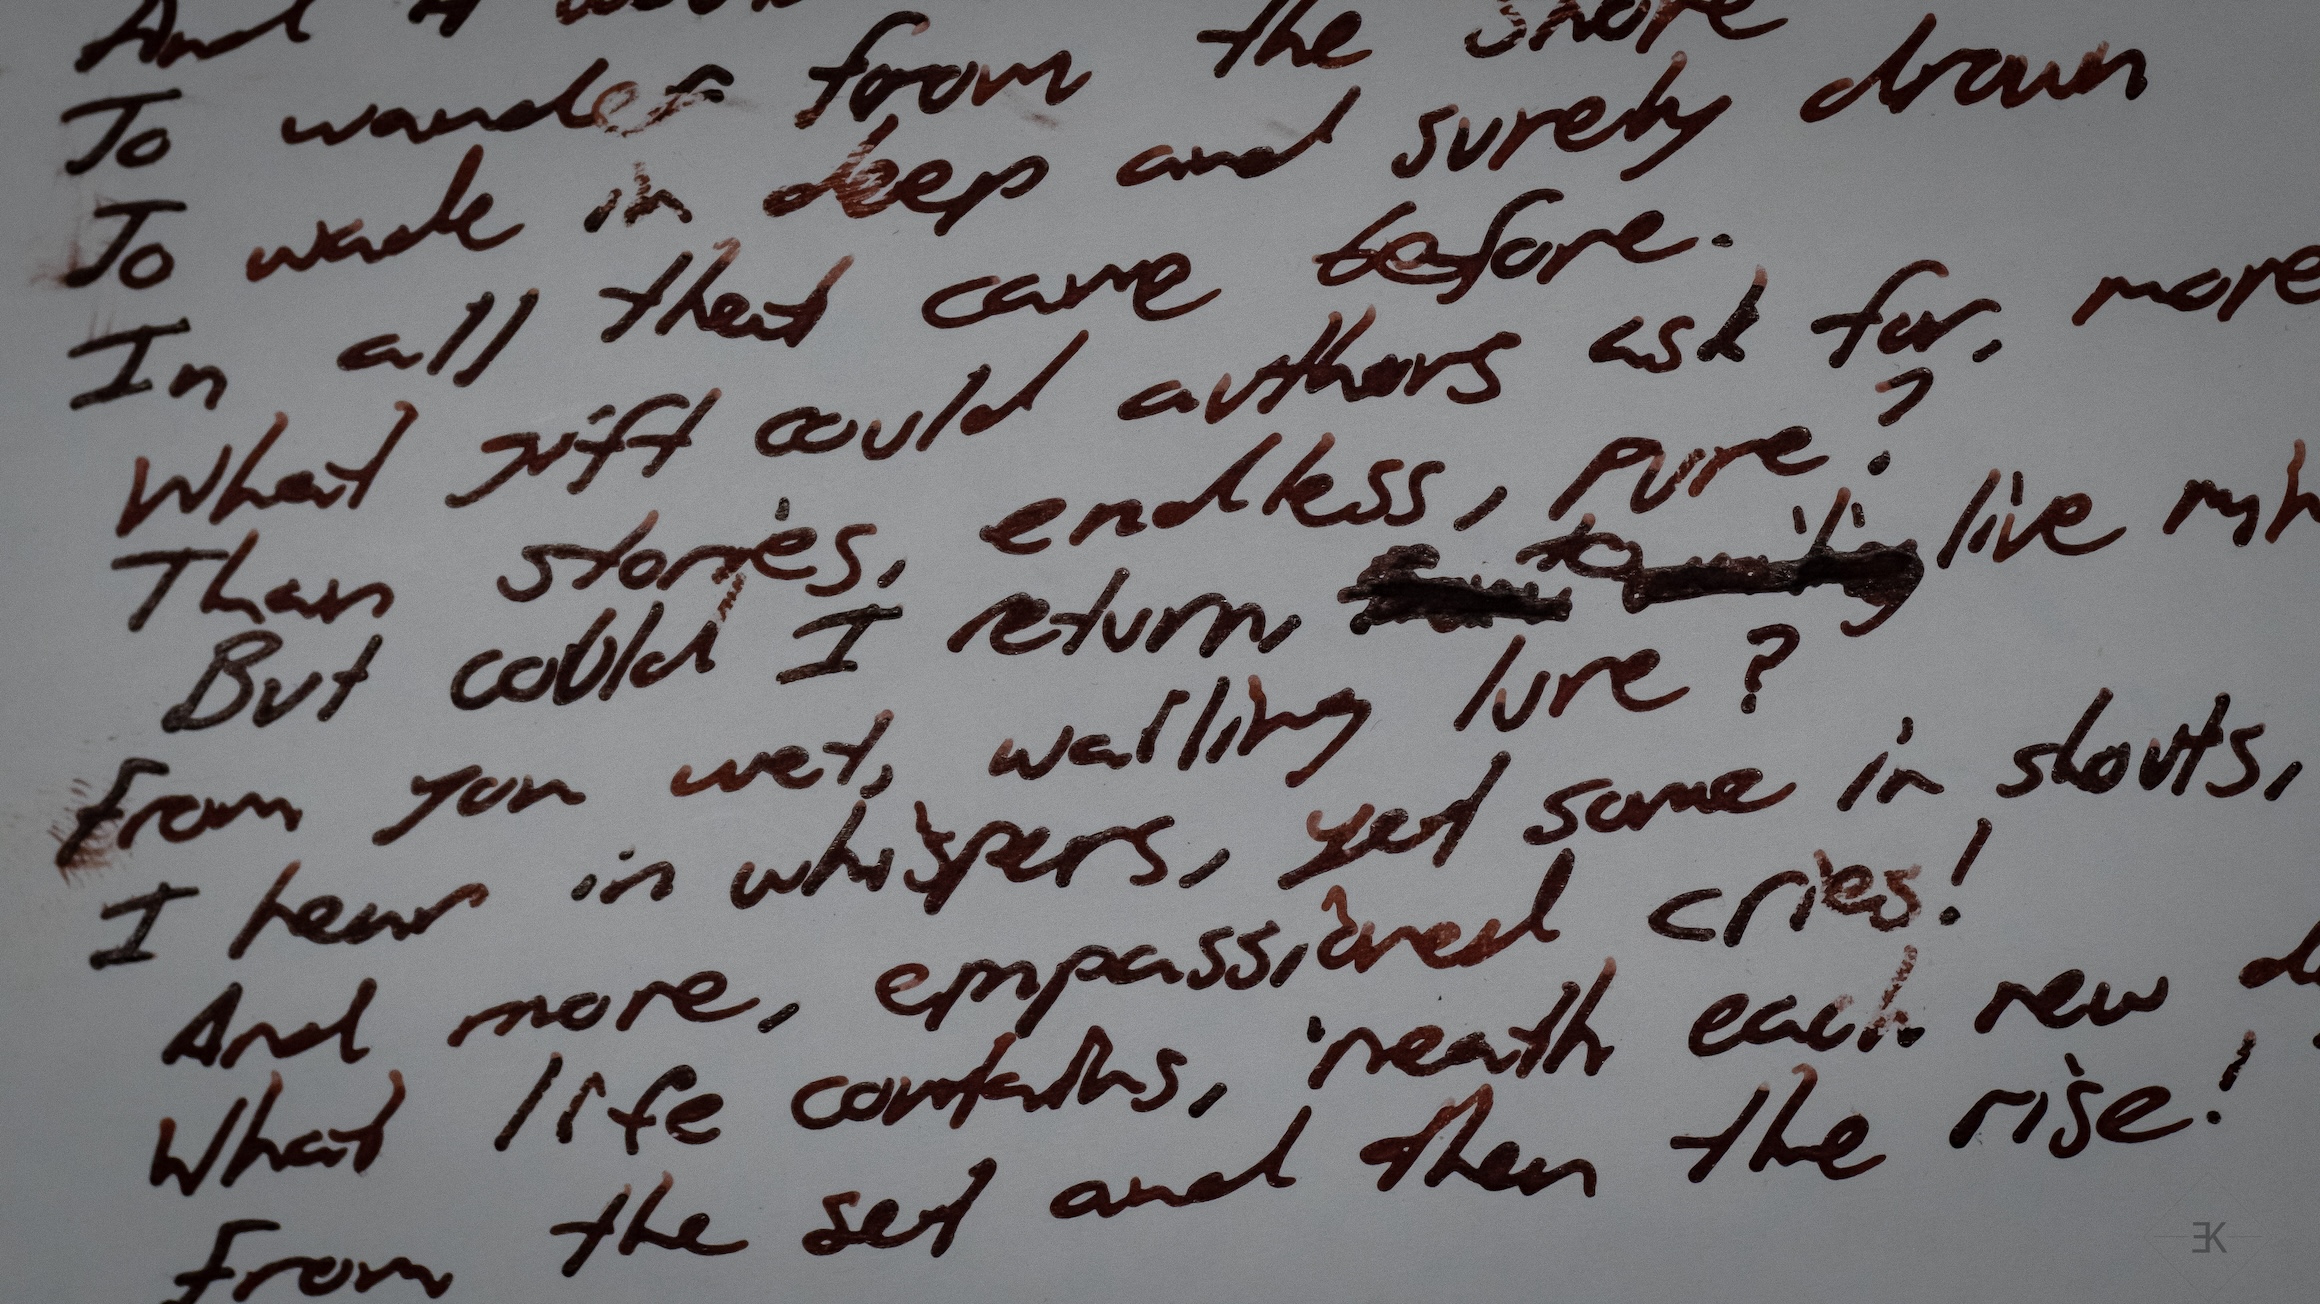 And
To wander from the shore
To wade in deep and surely drown
In all that came before.
What gift could authors ask for, more
Than stories, endless, pure?
But could I return, to live my
From yon wet, walling lure?
I hear in whispers, yet some in shouts,
And more, empassioned cries!
What life contains, 'neath each new
From the set and then the rise!
EK